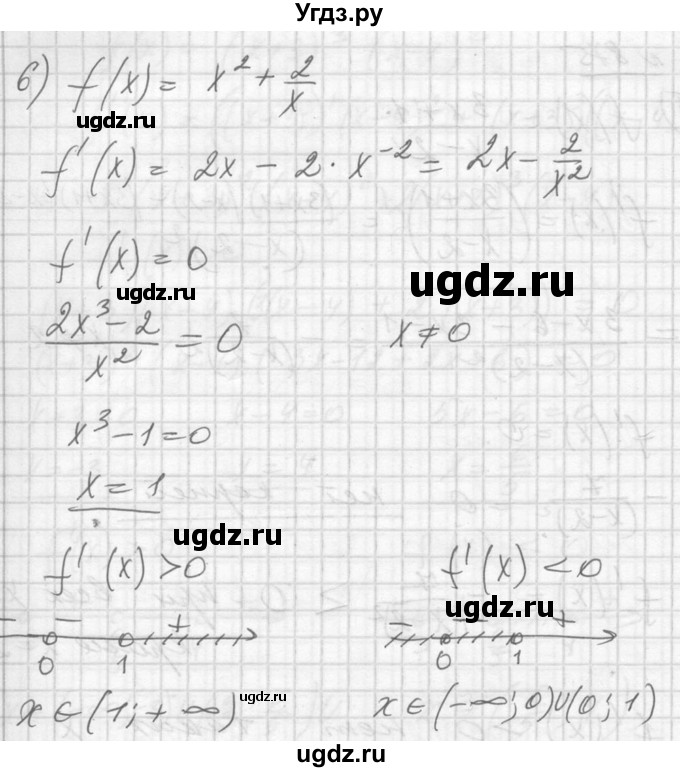 Угдз.ру
6) f(x) = x² + 2/x
ugdz.ru
f'(x) = 2x - 2 · x⁻² = 2x - 2/x²
f'(x) = 0
ugdz.ru
ugdz.ru
(2x³ - 2)/x² = 0    x ≠ 0
x³ - 1 = 0
x = 1
ugdz.ru
f'(x) > 0    f'(x) < 0
ugdz.ru
- - +    - - +
0 1    0 1
x ∈ (1; + ∞)    x ∈ (-∞; 0)∪(0; 1)
ugdz.ru
ugdz.ru